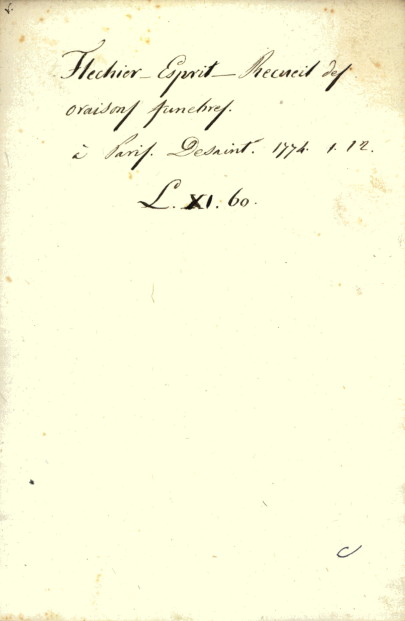 Flechier - Esprit - Recueil des
oraisons funebres.
à Paris. Desaint. 1774. 1. 12.
L. XI. 60.
C